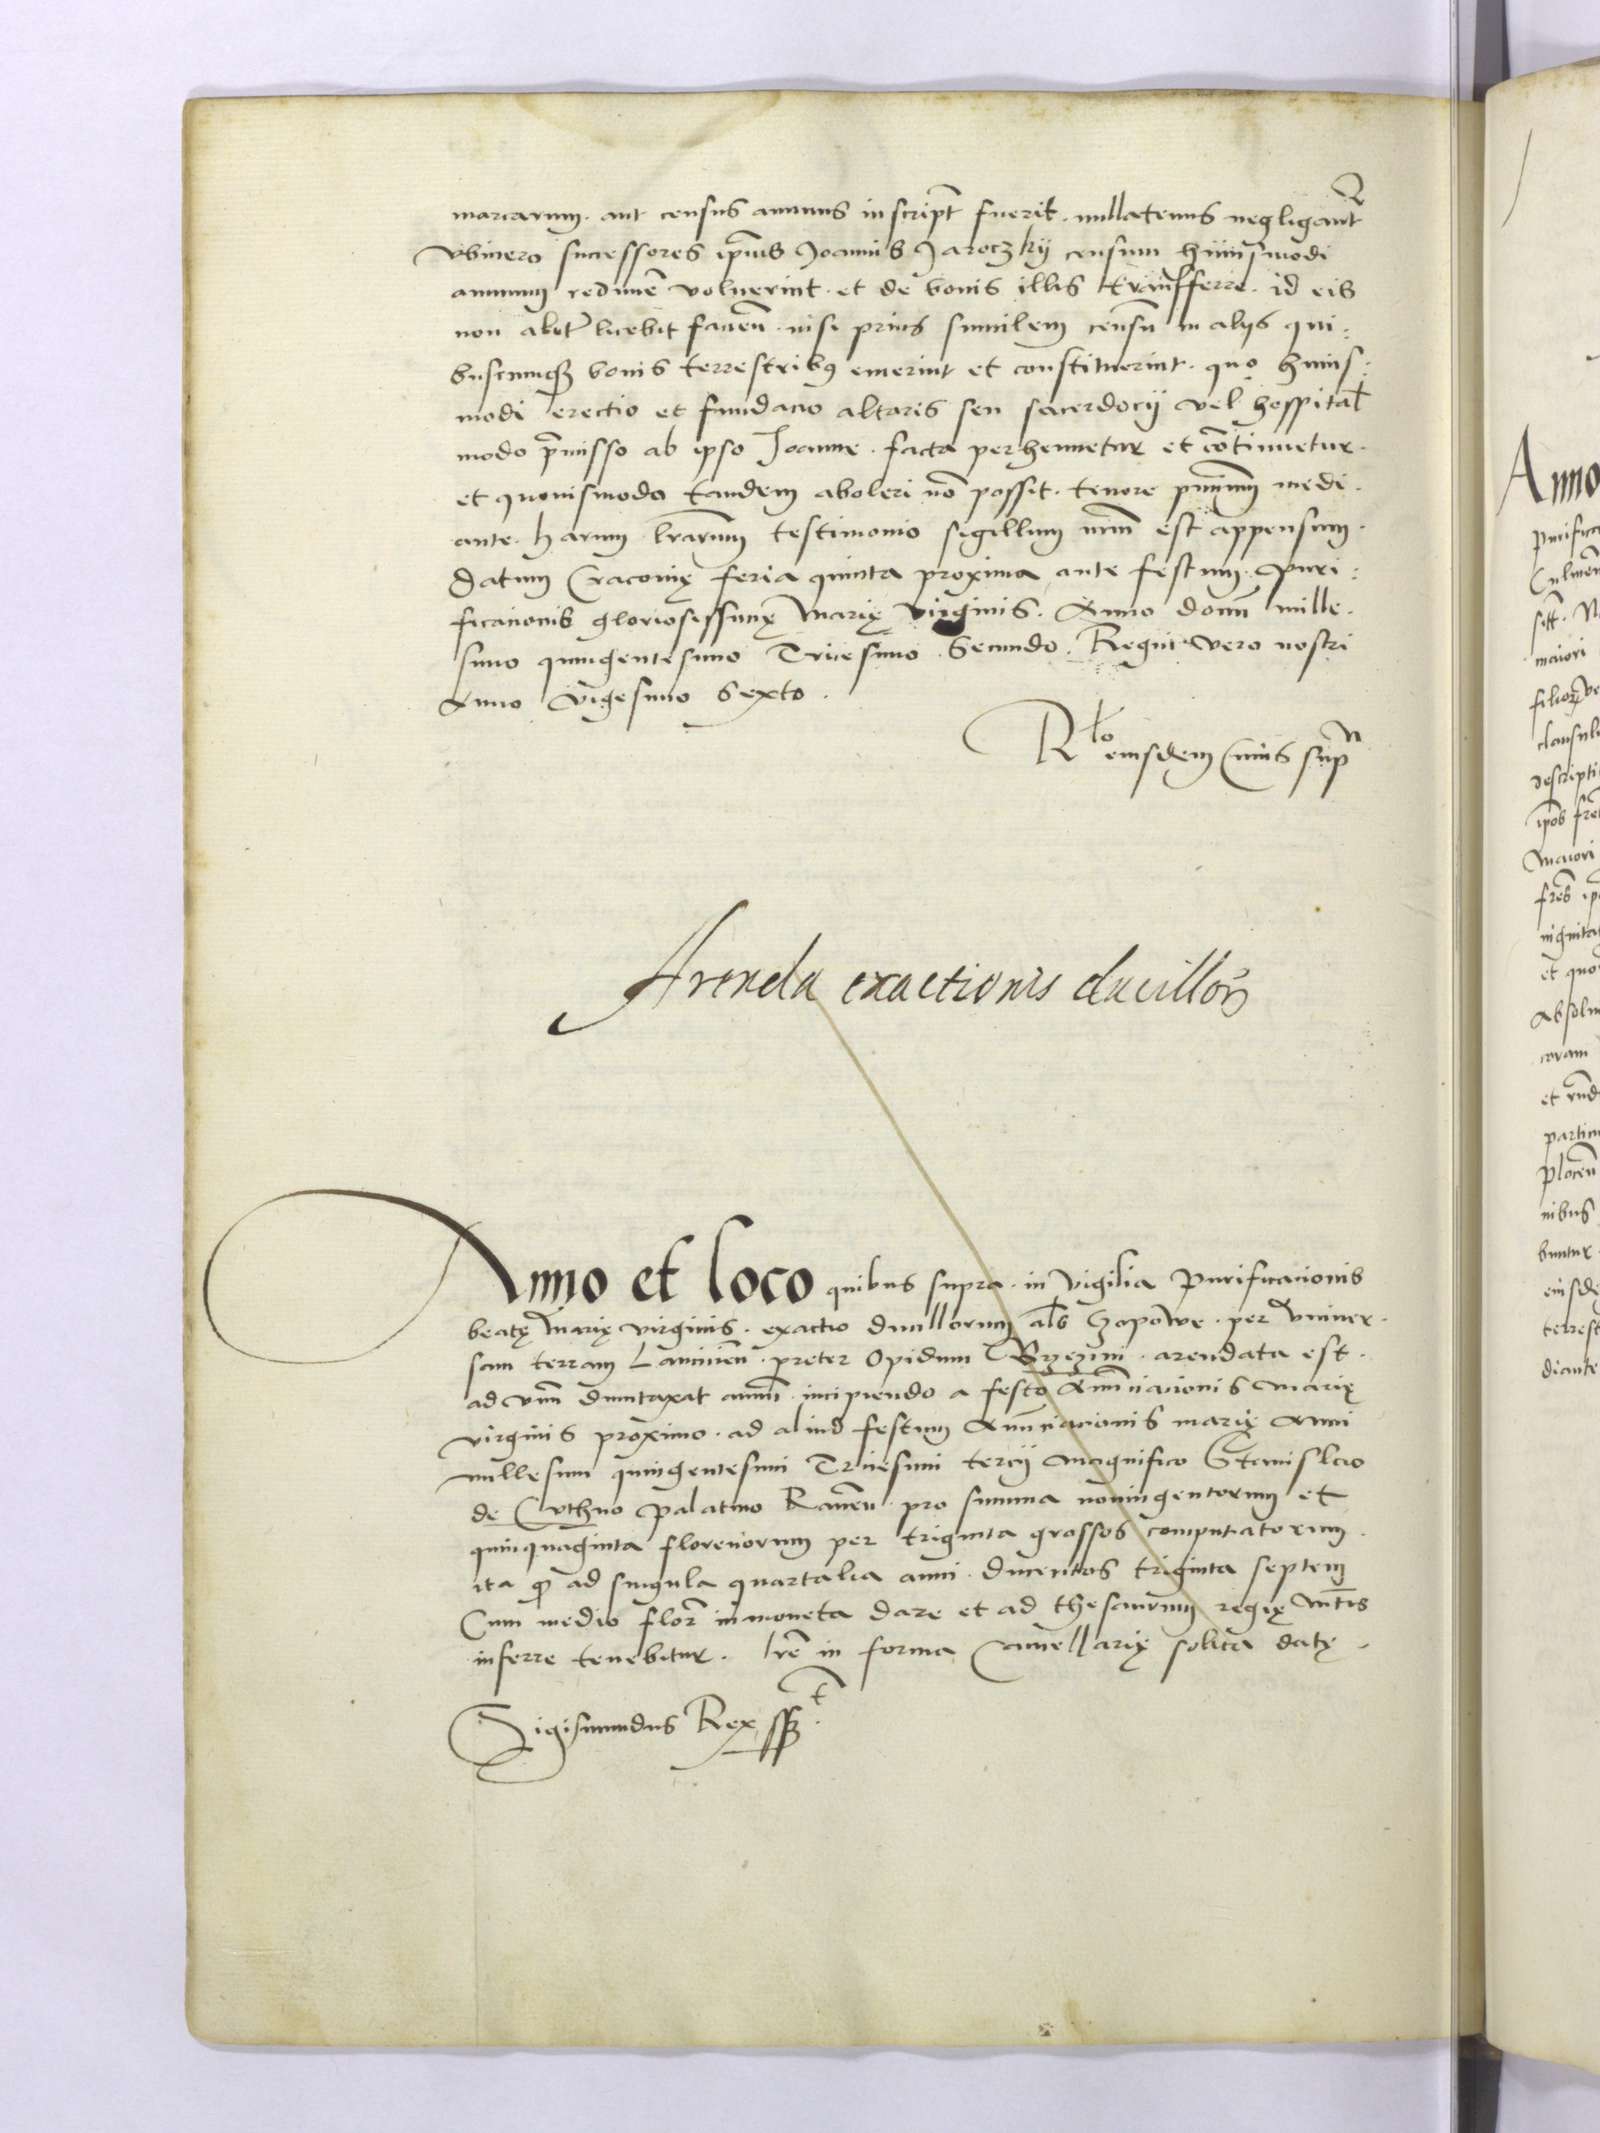 marcarum. aut census annuus inscript̄ fuerit. nullatenus negligant̄
Vbivero successores ip̄ius Joannis Jaroczkij censum huiusmodi
annuum redimē voluerint. et de bonis illis transfferre. id eis
non alit̄ licebit facien̄. nisi prius similem censū in alijs qui:
buscumqȝ bonis terrestribꝰ emerint et constituerint. quo huius:
modi erectio et fundacio altaris seu sacerdocij vel hospital̄
modo p̄misso ab ipso Joanne. facta perhennetur et cōtinuetur.
et quouismodo tandem aboleri nō possit. tenore pn̄tium medi.
ante. harum lrarum testimonio sigillum nr̄m est appensum.
Datum Cracovię feria quinta proxima ante festum. Puri:
ficationis gloriosissimę Marię virginis. Anno domī mille.
simo quingentesimo Tricesimo Secundo. Regni vero nostri
Anno vigesimo sexto.
R^lo eiusdem cuius sup^a
Arenda exactionis ducillor̄
Anno et loco quibus supra. in vigilia Purificacionis
beatę Marię virginis. exactio ducillorum al̄s Czopowe. per vniuer.
sam terram Lancicien̄. preter Opidum Brzezini. arendata est.
ad vnū dumtaxat annū. incipiendo a festo Anūciacionis Marię
virginis proximo. ad aliud festum Anūciacionis marię Anni
millesimi quingentesimi Tricesimi tercij Magnifico Stanislao
de Cuthno palatino Raven̄. pro summa noningentorum et
quinquaginta florenorum per triginta grossos computatorum.
ita ꝙ ad singula quartalia anni. ducentos triginta septem
Cum medio flor̄ in moneta dare et ad thesaurum regię Mt̄is
inferre tenebitur. lr̄e in forma Cancellarię solita datę.
Sigismundus Rex sst